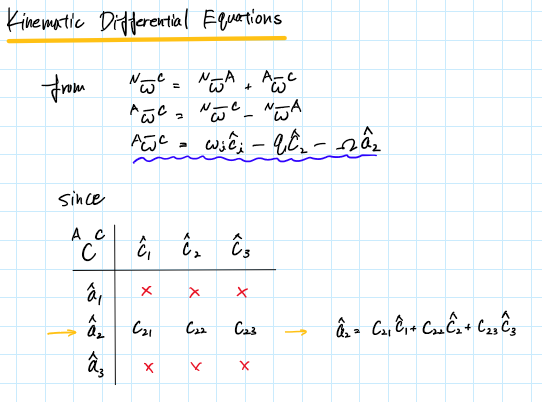 Kinematic Differential Equations
from ᴺω̄ᶜ = ᴺω̄ᴬ + ᴬω̄ᶜ
ᴬω̄ᶜ = ᴺω̄ᶜ - ᴺω̄ᴬ
ᴬω̄ᶜ = ωᵢĉᵢ - qĉ₂ - Ωâ₂
since
ᴬCᶜ ĉ₁ ĉ₂ ĉ₃
â₁ × × ×
→ â₂ C₂₁ C₂₂ C₂₃ → â₂ = C₂₁ĉ₁ + C₂₂ĉ₂ + C₂₃ĉ₃
â₃ × × ×